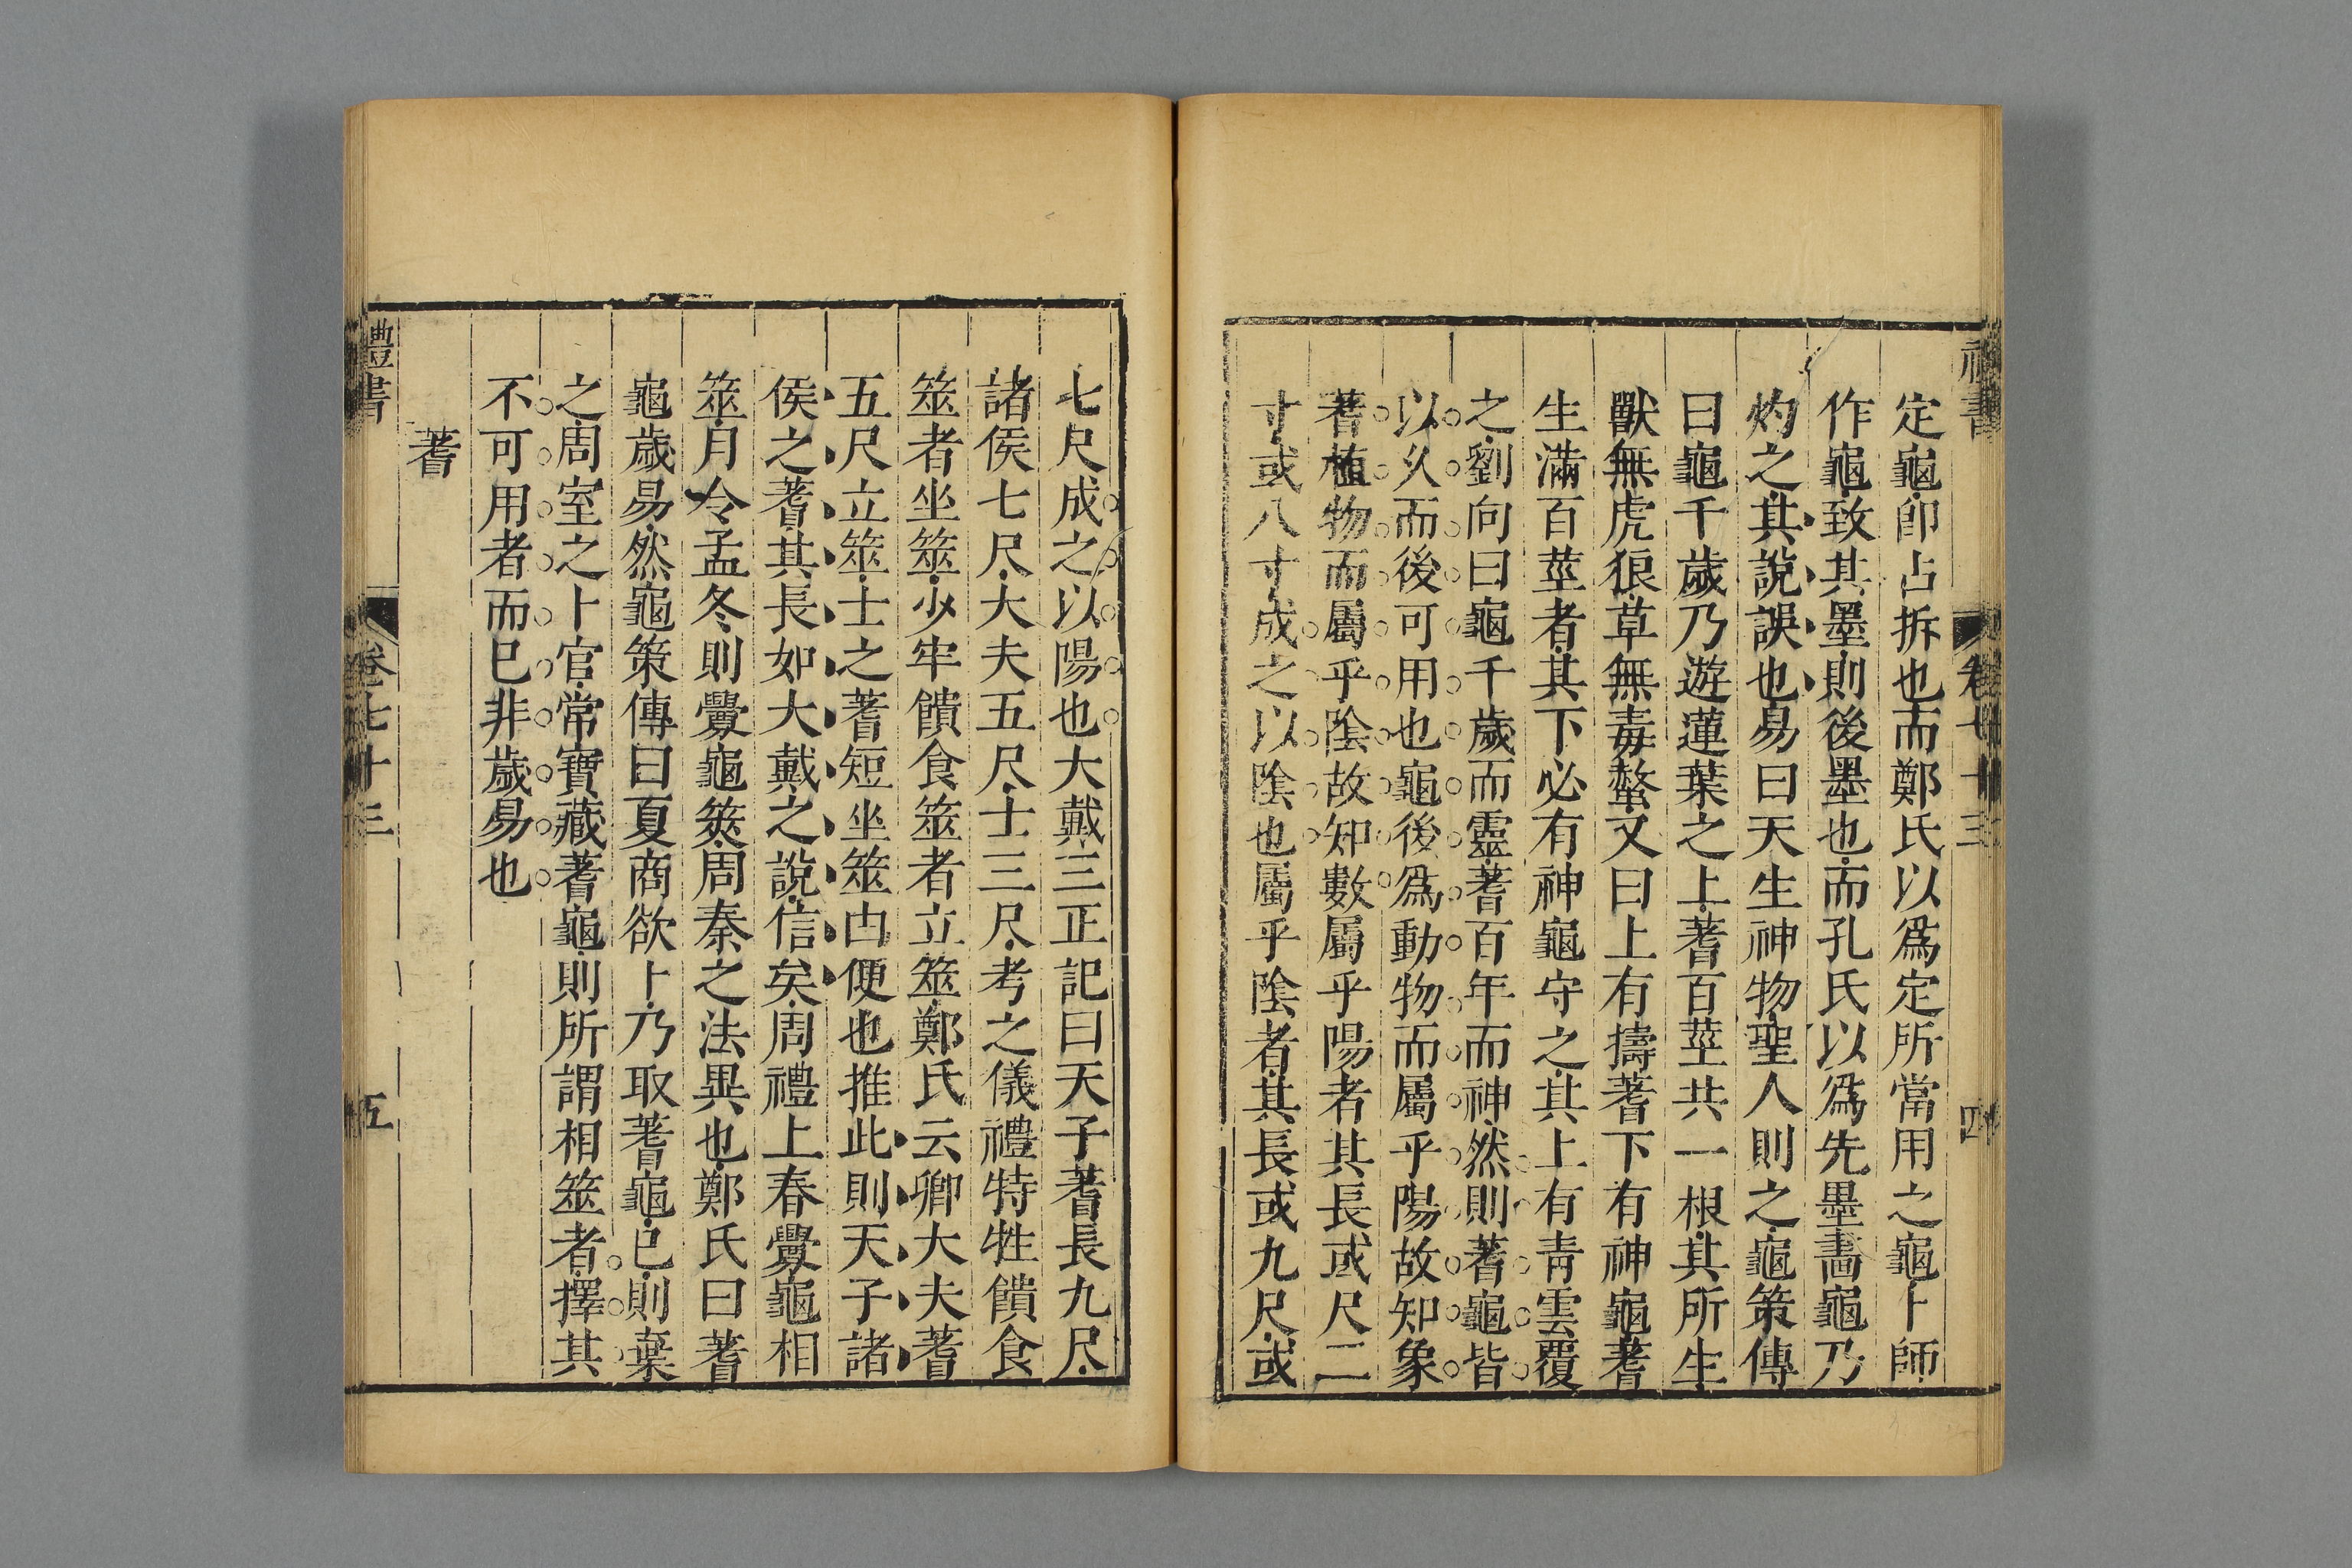 禮書
卷七十三
四
定龜卽占拆也而鄭氏以爲定所當用之龜卜師
作龜致其墨則後墨也而孔氏以爲先墨畫龜乃
灼之其說誤也易曰天生神物聖人則之龜策傳
曰龜千歲乃遊蓮葉之上蓍百莖共一根其所生
獸無虎狼草無毒螫又曰上有擣蓍下有神龜蓍
生滿百莖者其下必有神龜守之其上有靑雲覆
之劉向曰龜千歲而靈蓍百年而神然則蓍龜皆
以久而後可用也龜後爲動物而屬乎陽故知象
蓍植物而屬乎陰故知數屬乎陽者其長或尺二
寸或八寸成之以陰也屬乎陰者其長或九尺或
七尺成之以陽也大戴三正記曰天子蓍長九尺
諸侯七尺大夫五尺士三尺考之儀禮特牲饋食
筮者坐筮少牢饋食筮者立筮鄭氏云卿大夫蓍
五尺立筮士之蓍短坐筮由便也推此則天子諸
侯之蓍其長如大戴之說信矣周禮上春釁龜相
筮月令孟冬則釁龜筴周秦之法異也鄭氏曰蓍
龜歲易然龜策傳曰夏商欲卜乃取蓍龜已則棄
之周室之卜官常寶藏蓍龜則所謂相筮者擇其
不可用者而已非歲易也
蓍
禮書
卷七十三
五